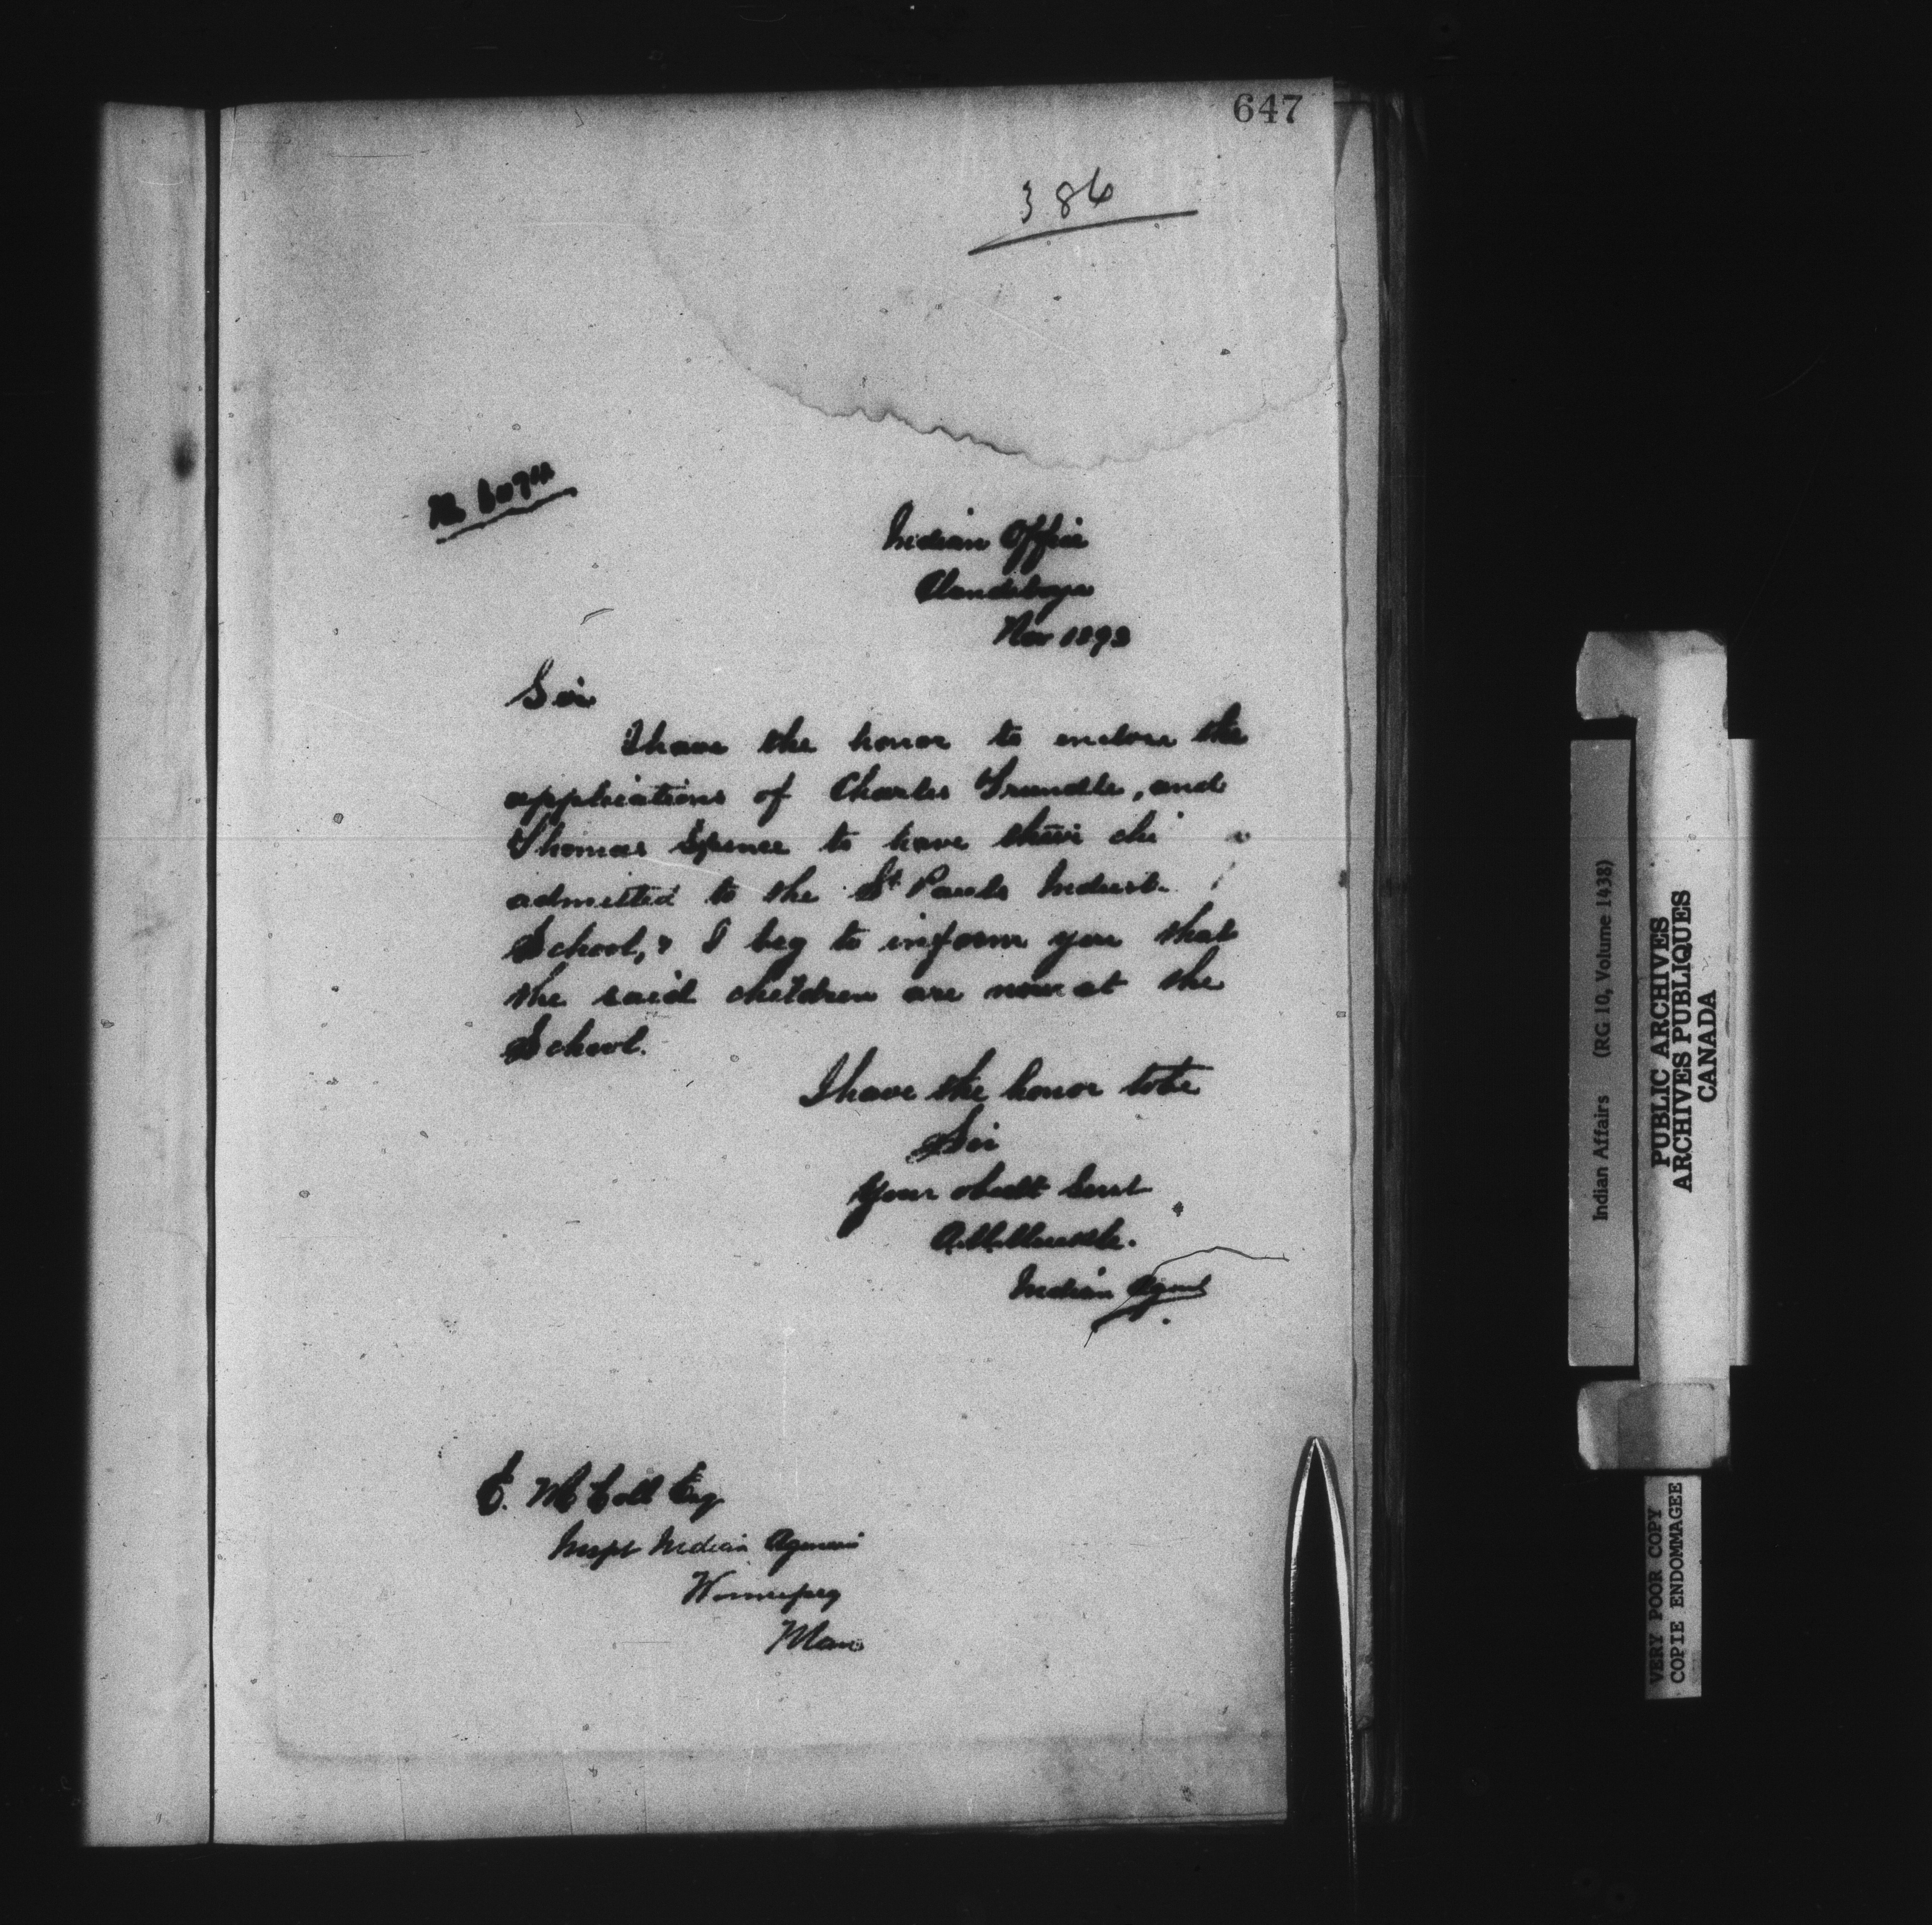 647
386
Indian Office
Clandeboye
Nov 1893
Sir
I have the honor to enclose the
applications of Charles Trundle, and
Thomas Spence to have their chi
admitted to the St Pauls Indust
School, & I beg to inform you that
the said children are now at the
School.
I have the honor to be
Sir
Your obedt Servt
Indian Agent
E. McColl Esq
Inspt Indian Agencies
Winnipeg
Man
Indian Affairs (RG 10, Volume 1438)
PUBLIC ARCHIVES
ARCHIVES PUBLIQUES
CANADA
VERY POOR COPY
COPIE ENDOMMAGEE